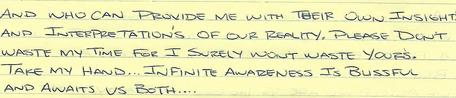 AND WHO CAN PROVIDE ME WITH THEIR OWN INSIGHT
AND INTERPRETATION'S OF OUR REALITY. PLEASE DON'T
WASTE MY TIME FOR I SURELY WON'T WASTE YOURS.
TAKE MY HAND... INFINITE AWARENESS IS BLISSFUL
AND AWAITS US BOTH....